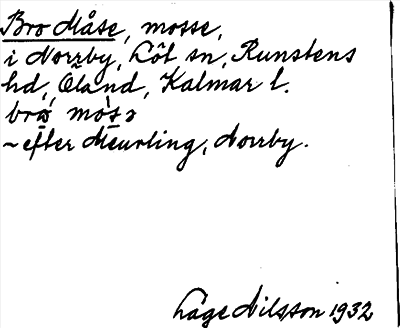 Bro Måse, mosse,
i Norrby, Löt sn, Runstens
hd, Öland, Kalmar l.
brω mòsɔ
~ efter Meurling, Norrby.
Låge Nilsson 1932